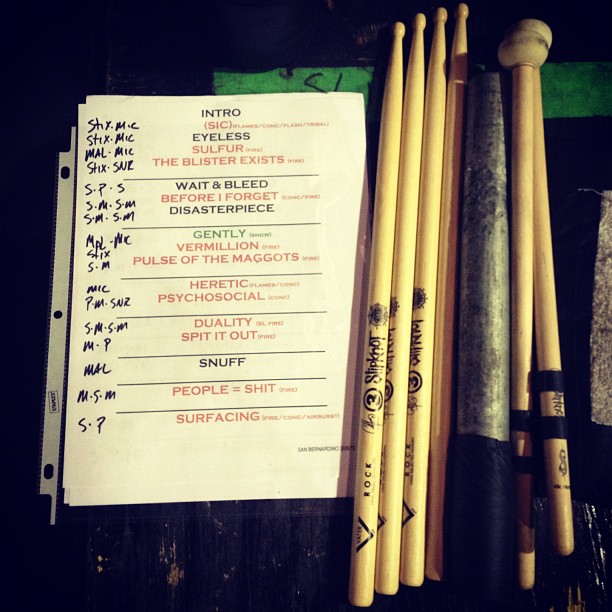 INTRO
Stix. Mic (SIC) (FLAMES/CONC/FLASH/TRIBAL)
Stix. Mic EYELESS
MAL. Mic SULFUR (FIRE)
Stix. SNR THE BLISTER EXISTS (FIRE)
S. P. S WAIT & BLEED
S. M. S. M BEFORE I FORGET (CONC/FIRE)
S. M. S. M DISASTERPIECE
MAL. Mic GENTLY (SNOW)
Stix VERMILLION (FIRE)
S. M PULSE OF THE MAGGOTS (FIRE)
MIC HERETIC (FLAMES/CONC)
P. M. SNR PSYCHOSOCIAL (CONC)
S. M. S. M DUALITY (SL FIRE)
M. P SPIT IT OUT (FIRE)
MAL SNUFF
M. S. M PEOPLE = SHIT (FIRE)
S. P SURFACING (FIRE/CONC/AIRBURST)
SAN BERNARDINO
Slipknot 3
ROCK
VATER
Slipknot 3
ROCK